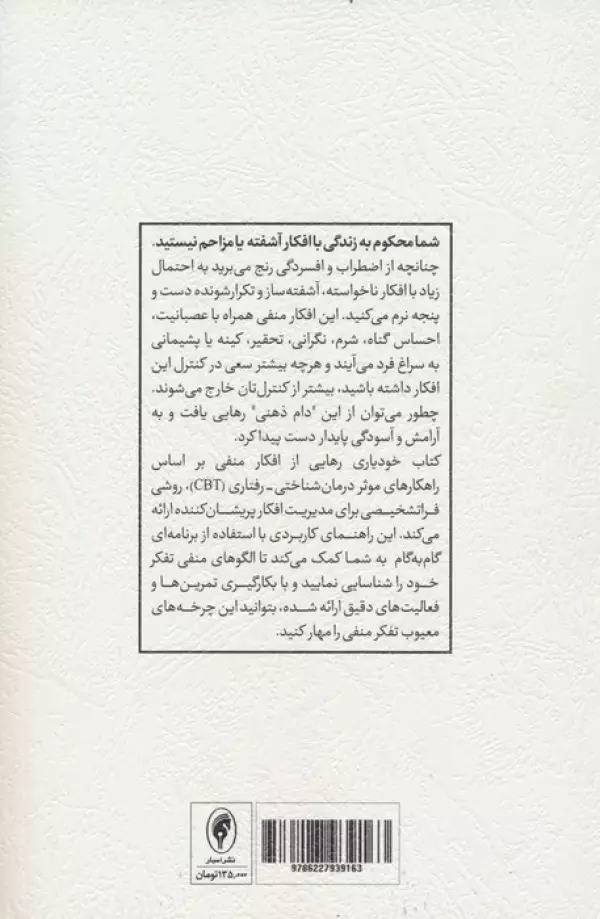 شما محکوم به زندگی با افکار آشفته یا مزاحم نیستید.
چنانچه از اضطراب و افسردگی رنج می‌برید به احتمال
زیاد با افکار ناخواسته، آشفته‌ساز و تکرارشونده دست و
پنجه نرم می‌کنید. این افکار منفی همراه با عصبانیت،
احساس گناه، شرم، نگرانی، تحقیر، کینه یا پشیمانی
به سراغ فرد می‌آیند و هرچه بیشتر سعی در کنترل این
افکار داشته باشید، بیشتر از کنترل‌تان خارج می‌شوند.
چطور می‌توان از این "دام ذهنی" رهایی یافت و به
آرامش و آسودگی پایدار دست پیدا کرد.
کتاب خودیاری رهایی از افکار منفی بر اساس
راهکارهای موثر درمان‌شناختی-رفتاری (CBT)، روشی
فراتشخیصی برای مدیریت افکار پریشان‌کننده ارائه
می‌کند. این راهنمای کاربردی با استفاده از برنامه‌ای
گام‌به‌گام به شما کمک می‌کند تا الگوهای منفی تفکر
خود را شناسایی نمایید و با بکارگیری تمرین‌ها و
فعالیت‌های دقیق ارائه شده، بتوانید این چرخه‌های
معیوب تفکر منفی را مهار کنید.
نشر اسبار
۱۳۵,۰۰۰تومان
9786227939163